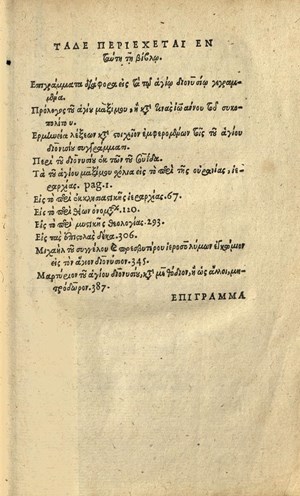 ΤΑΔΕ ΠΕΡΙΕΧΕΤΑΙ ΕΝ
ταύτῃ τῇ βίβλῳ.
Επιγράμματα διάφορα εἰς τὰ τῷ ἁγίῳ διονυσίῳ γεγραμ-
μένα.
Πρόλογος τοῦ ἁγίου μαξίμου, ἢ κατά τινας ἰωάννου τοῦ σκυθο-
πολίτου.
Ερμηνεία λέξεων κατὰ στοιχεῖον ἐμφερομένων τοῖς τοῦ ἁγίου
διονυσίου συγγράμμασι.
Περὶ τοῦ διονυσίου ἐκ τῶν τοῦ Σουΐδα.
Τὰ τοῦ ἁγίου μαξίμου σχόλια εἰς τὸ περὶ τῆς οὐρανίας, ἱε-
ραρχίας. pag. 1.
Εἰς τὸ περὶ ἐκκλησιαστικῆς ἱεραρχίας. 67.
Εἰς τὸ περὶ θείων ὀνομάτων. 110.
Εἰς τὸ περὶ μυστικῆς θεολογίας. 293.
Εἰς τὰς ἐπιστολὰς δέκα. 306.
Μιχαὴλ τοῦ συγγέλου καὶ πρεσβυτέρου ἱεροσολύμων ἐγκώμιον
εἰς τὸν ἅγιον διονύσιον. 345.
Μαρτύριον τοῦ ἁγίου διονυσίου, κατὰ μεθόδιον, ἢ ὡς ἄλλοι, μη-
τρόδωρον. 387.
ΕΠΙΓΡΑΜΜΑ